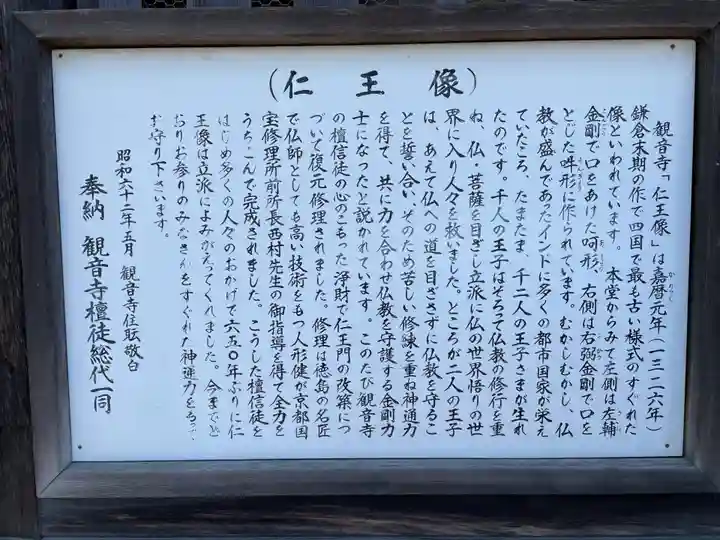 (仁王像)
観音寺「仁王像」は嘉暦元年(一三二六年)
鎌倉末期の作で四国で最も古い様式のすぐれた
像といわれています。本堂からみて左側は左輔
金剛で口をあけた呵形、右側は右弼金剛で口を
とじた吽形に作られています。むかしむかし、仏
教が盛んであったインドに多くの都市国家が栄え
ていたころ、たまたま、千二人の王子さまが生れ
たのです。千人の王子はそろって仏教の修行を重
ね、仏・菩薩を目ざし立派に仏の世界悟りの世
界に入り人々を救いました。ところが二人の王子
は、あえて仏への道を目ざさずに仏教を守るこ
とを誓い合い、そのため苦しい修練を重ね神通力
を得て、共に力を合わせ仏教を守護する金剛力
士になったと説かれています。このたび観音寺
の檀信徒の心のこもった浄財で仁王門の改築につ
づいて復元修理されました。修理は徳島の名匠
で仏師としても高い技術をもつ人形健が京都国
宝修理所前所長西村先生の御指導を得て全力を
うちこんで完成されました。こうした檀信徒を
はじめ多くの人々のおかげで六五〇年ぶりに仁
王像は立派によみがえってくれました。今までど
おりお参りのみなさんをすぐれた神通力をもって
お守り下さいます。
昭和六十二年五月 観音寺住職敬白
奉納 観音寺檀徒総代一同